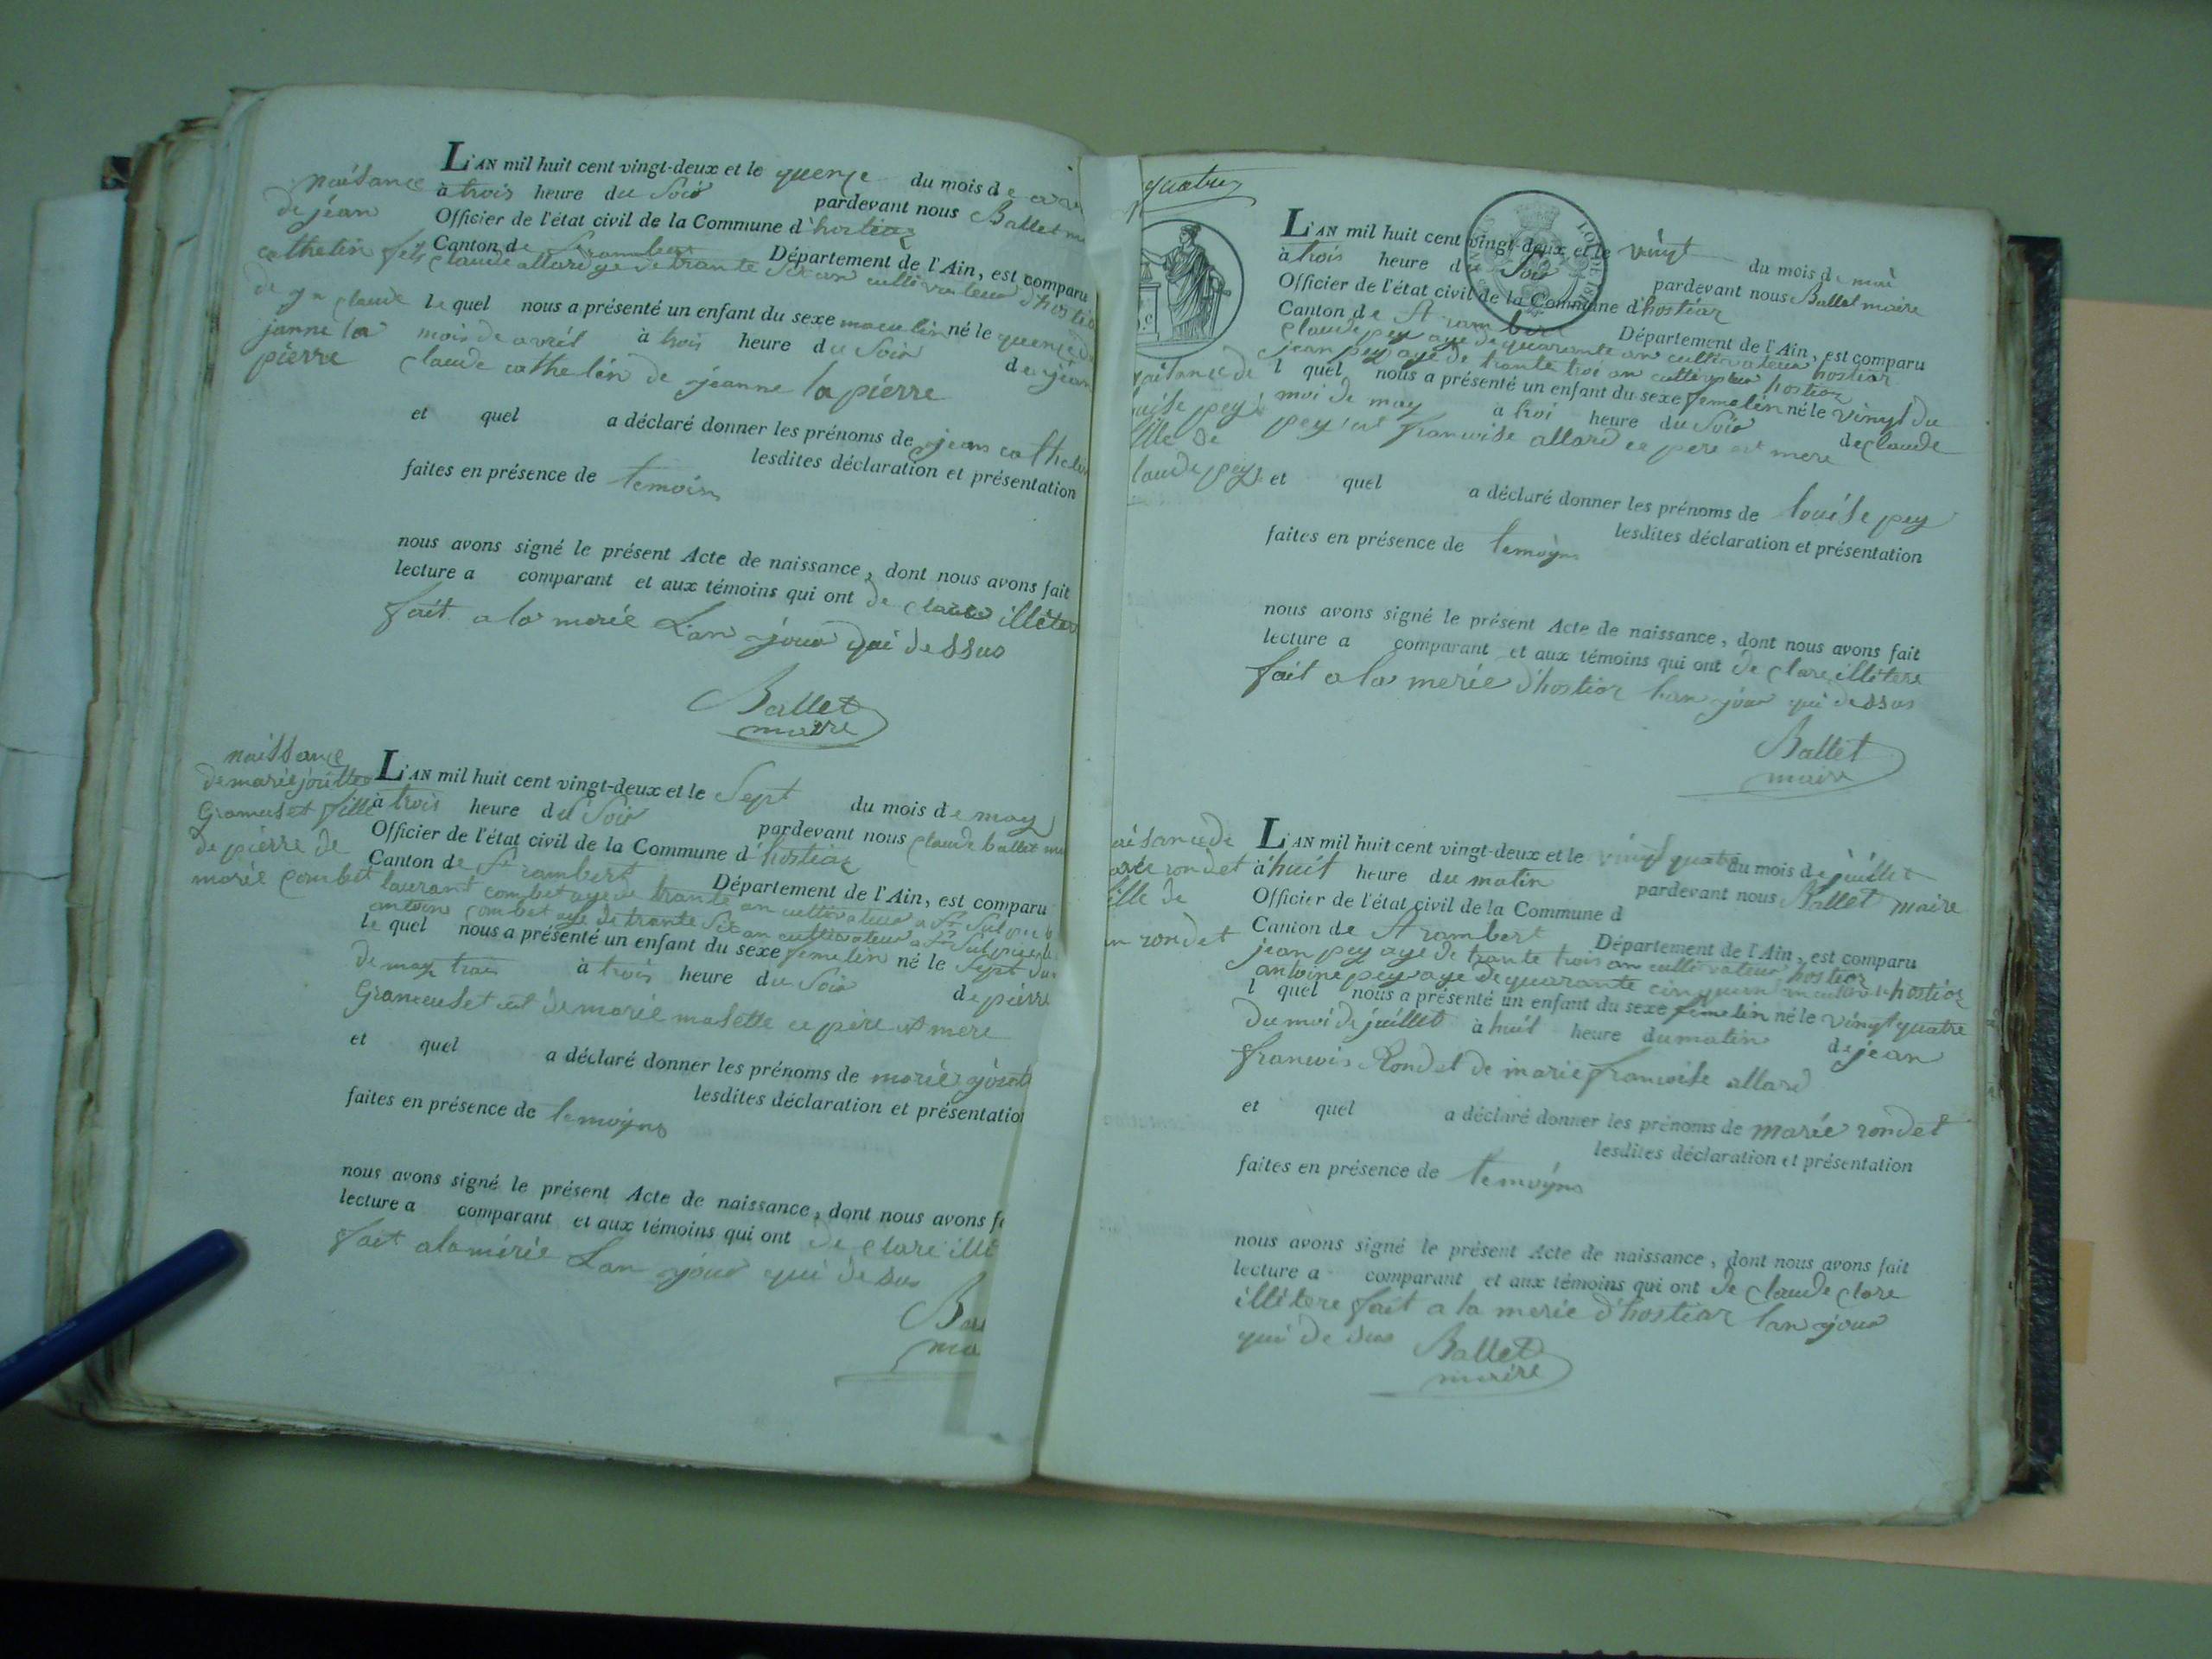 naisance
de jéan
cathelin fils
de jn claude
janne la
pierre
L'AN mil huit cent vingt-deux et le quenze du mois de
à trois heure du Soir pardevant nous Ballet
Officier de l'état civil de la Commune d'hostiaz
Canton de St rambert Département de l'Ain, est comparu
claude allard age de trante Six an cultivateur
le quel nous a présenté un enfant du sexe masculin né le quenze du
mois de avril à trois heure du Soir de jéan
claude cathelin de jeanne la pierre
et quel a déclaré donner les prénoms de jean cathelin
lesdites déclaration et présentation
faites en présence de temoins
nous avons signé le présent Acte de naissance, dont nous avons fait
lecture a comparant et aux témoins qui ont de clare illéter
fait a la merié L'an jour qui dessus
Ballet
maire
naissance
de marie
Gramuset fille
de piérre de
marié Combet
L'AN mil huit cent vingt-deux et le Sept du mois de may
à trois heure du Soir pardevant nous claude ballet
Officier de l'état civil de la Commune d'hostiaz
Canton de St rambert Département de l'Ain, est comparu
laurant combet age de trante an cultivateur a St Sulpice
antoin combet age de trante Six an cultivateur a St Sulpice
le quel nous a présenté un enfant du sexe femelin né le Sept du
de may à trois heure du Soir de piérre
Grameuset et de marié masette ce père et mere
et quel a déclaré donner les prénoms de marié
lesdites déclaration et présentatio
faites en présence de temoyns
nous avons signé le présent Acte de naissance, dont nous avons f
lecture a comparant et aux témoins qui ont de clare illi
fait a la mérié L'an jour qui desus
quatre
L'AN mil huit cent vingt-deux et le vingt du mois de mai
à trois heure du Soir pardevant nous Ballet maire
Officier de l'état civil de la Commune d'hostiaz
Canton de St rambert Département de l'Ain, est comparu
claude pey age de quarante an cultivateur hostiaz
jean pey age de trante troi an cultivateur hostiaz
l quel nous a présenté un enfant du sexe femelin né le vingt du
moi de may à troi heure du Soir de claude
pey et francoise allard ce pere et mere
et quel a déclaré donner les prénoms de louise pey
lesdites déclaration et présentation
faites en présence de temoyns
nous avons signé le présent Acte de naissance, dont nous avons fait
lecture a comparant et aux témoins qui ont de clare illitere
fait a la merié d'hostiaz lan jour qui dessus
Ballet
maire
L'AN mil huit cent vingt-deux et le vingt quatre du mois de juillet
à huit heure du matin pardevant nous Ballet maire
Officier de l'état civil de la Commune d
Canton de St rambert Département de l'Ain, est comparu
jean pey age de trante trois an cultivateur hostiaz
antoine pey age de quarante cin hostiaz
l quel nous a présenté un enfant du sexe femelin né le vingt quatre
du moi de juillet à huit heure du matin de jean
francois Rondet de marie francoise allard
et quel a déclaré donner les prénoms de marié rondet
lesdites déclaration et présentation
faites en présence de temoyns
nous avons signé le présent Acte de naissance, dont nous avons fait
lecture a comparant et aux témoins qui ont de claude clare
illitere fait a la merié d'hostiaz lan jour
qui desus Ballet
maire